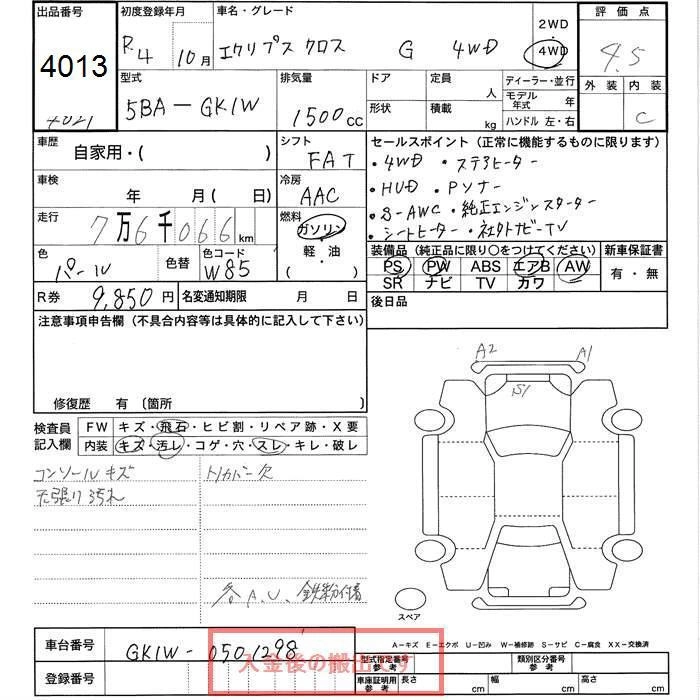 出品番号 初度登録年月 車名・グレード 2WD 評価点
4013 R.4 10月 エクリプス クロス G 4WD ・ 4WD 4.5
型式 排気量 ドア 定員 ディーラー・並行 外装 内装
人 モデル年式 年
4021 5BA-GK1W 1500cc 形状 積載 kg ハンドル 左・右 C
車歴 自家用・( ) シフト FAT セールスポイント (正常に機能するものに限ります)
・4WD ・ステアヒーター
車検 年 月(日) 冷房 AAC ・HUD ・Pソナー
・S-AWC ・純正エンジンスターター
走行 7万6千066km 燃料 ガソリン ・シートヒーター ・社外ナビーTV
軽・油
( )
色 パール 色替 色コード W85 装備品 (純正品に限り〇をつけてください) 新車保証書
PS PW ABS エアB AW 有・無
SR ナビ TV カワ
R券 9,850円 名変通知期限 月 日 後日品
注意事項申告欄 (不具合内容等は具体的に記入して下さい)
修復歴 有 (箇所 )
A2 A1
S1
検査員 FW キズ・飛石・ヒビ割・リペア跡・X要
記入欄 内装 キズ・汚レ・コゲ・穴・スレ・キレ・破レ
コンソールキズ トノカバー欠
天張り汚れ
各A.U、鉄粉付着
スペア
A-キズ E-エクボ U-凹み W-補修跡 S-サビ C-腐食 XX-交換済
車台番号 GK1W-0501298 型式指定番号 参考 類別区分番号 参考
入金後の搬出です
登録番号 車庫証明用 参考 長さ cm 幅 cm 高さ cm